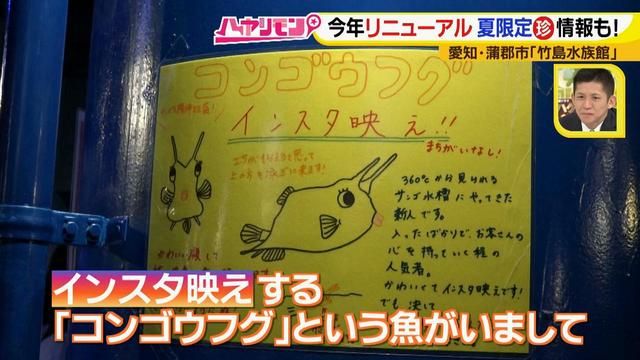 ハヤリモン
今年リニューアル 夏限定㊙珍情報も!
愛知・蒲郡市「竹島水族館」
コンゴウフグ
インスタ映え!!
まちがいなし!
360°から見られる
サンゴ水槽にやってきた
新人です。
入ったばかりで、お客さんの
心を持っていく程の
人気者。
かわいくてインスタ映えです!
でも決して
上の方を泳ぎに来ます!
かわいい顔して
インスタ映えする
「コンゴウフグ」という魚がいまして